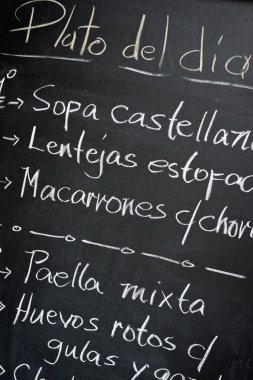 Plato del día
1º
→ Sopa castellan
→ Lentejas estofad
→ Macarrones c/chori
→ Paella mixta
→ Huevos rotos c/
gulas y